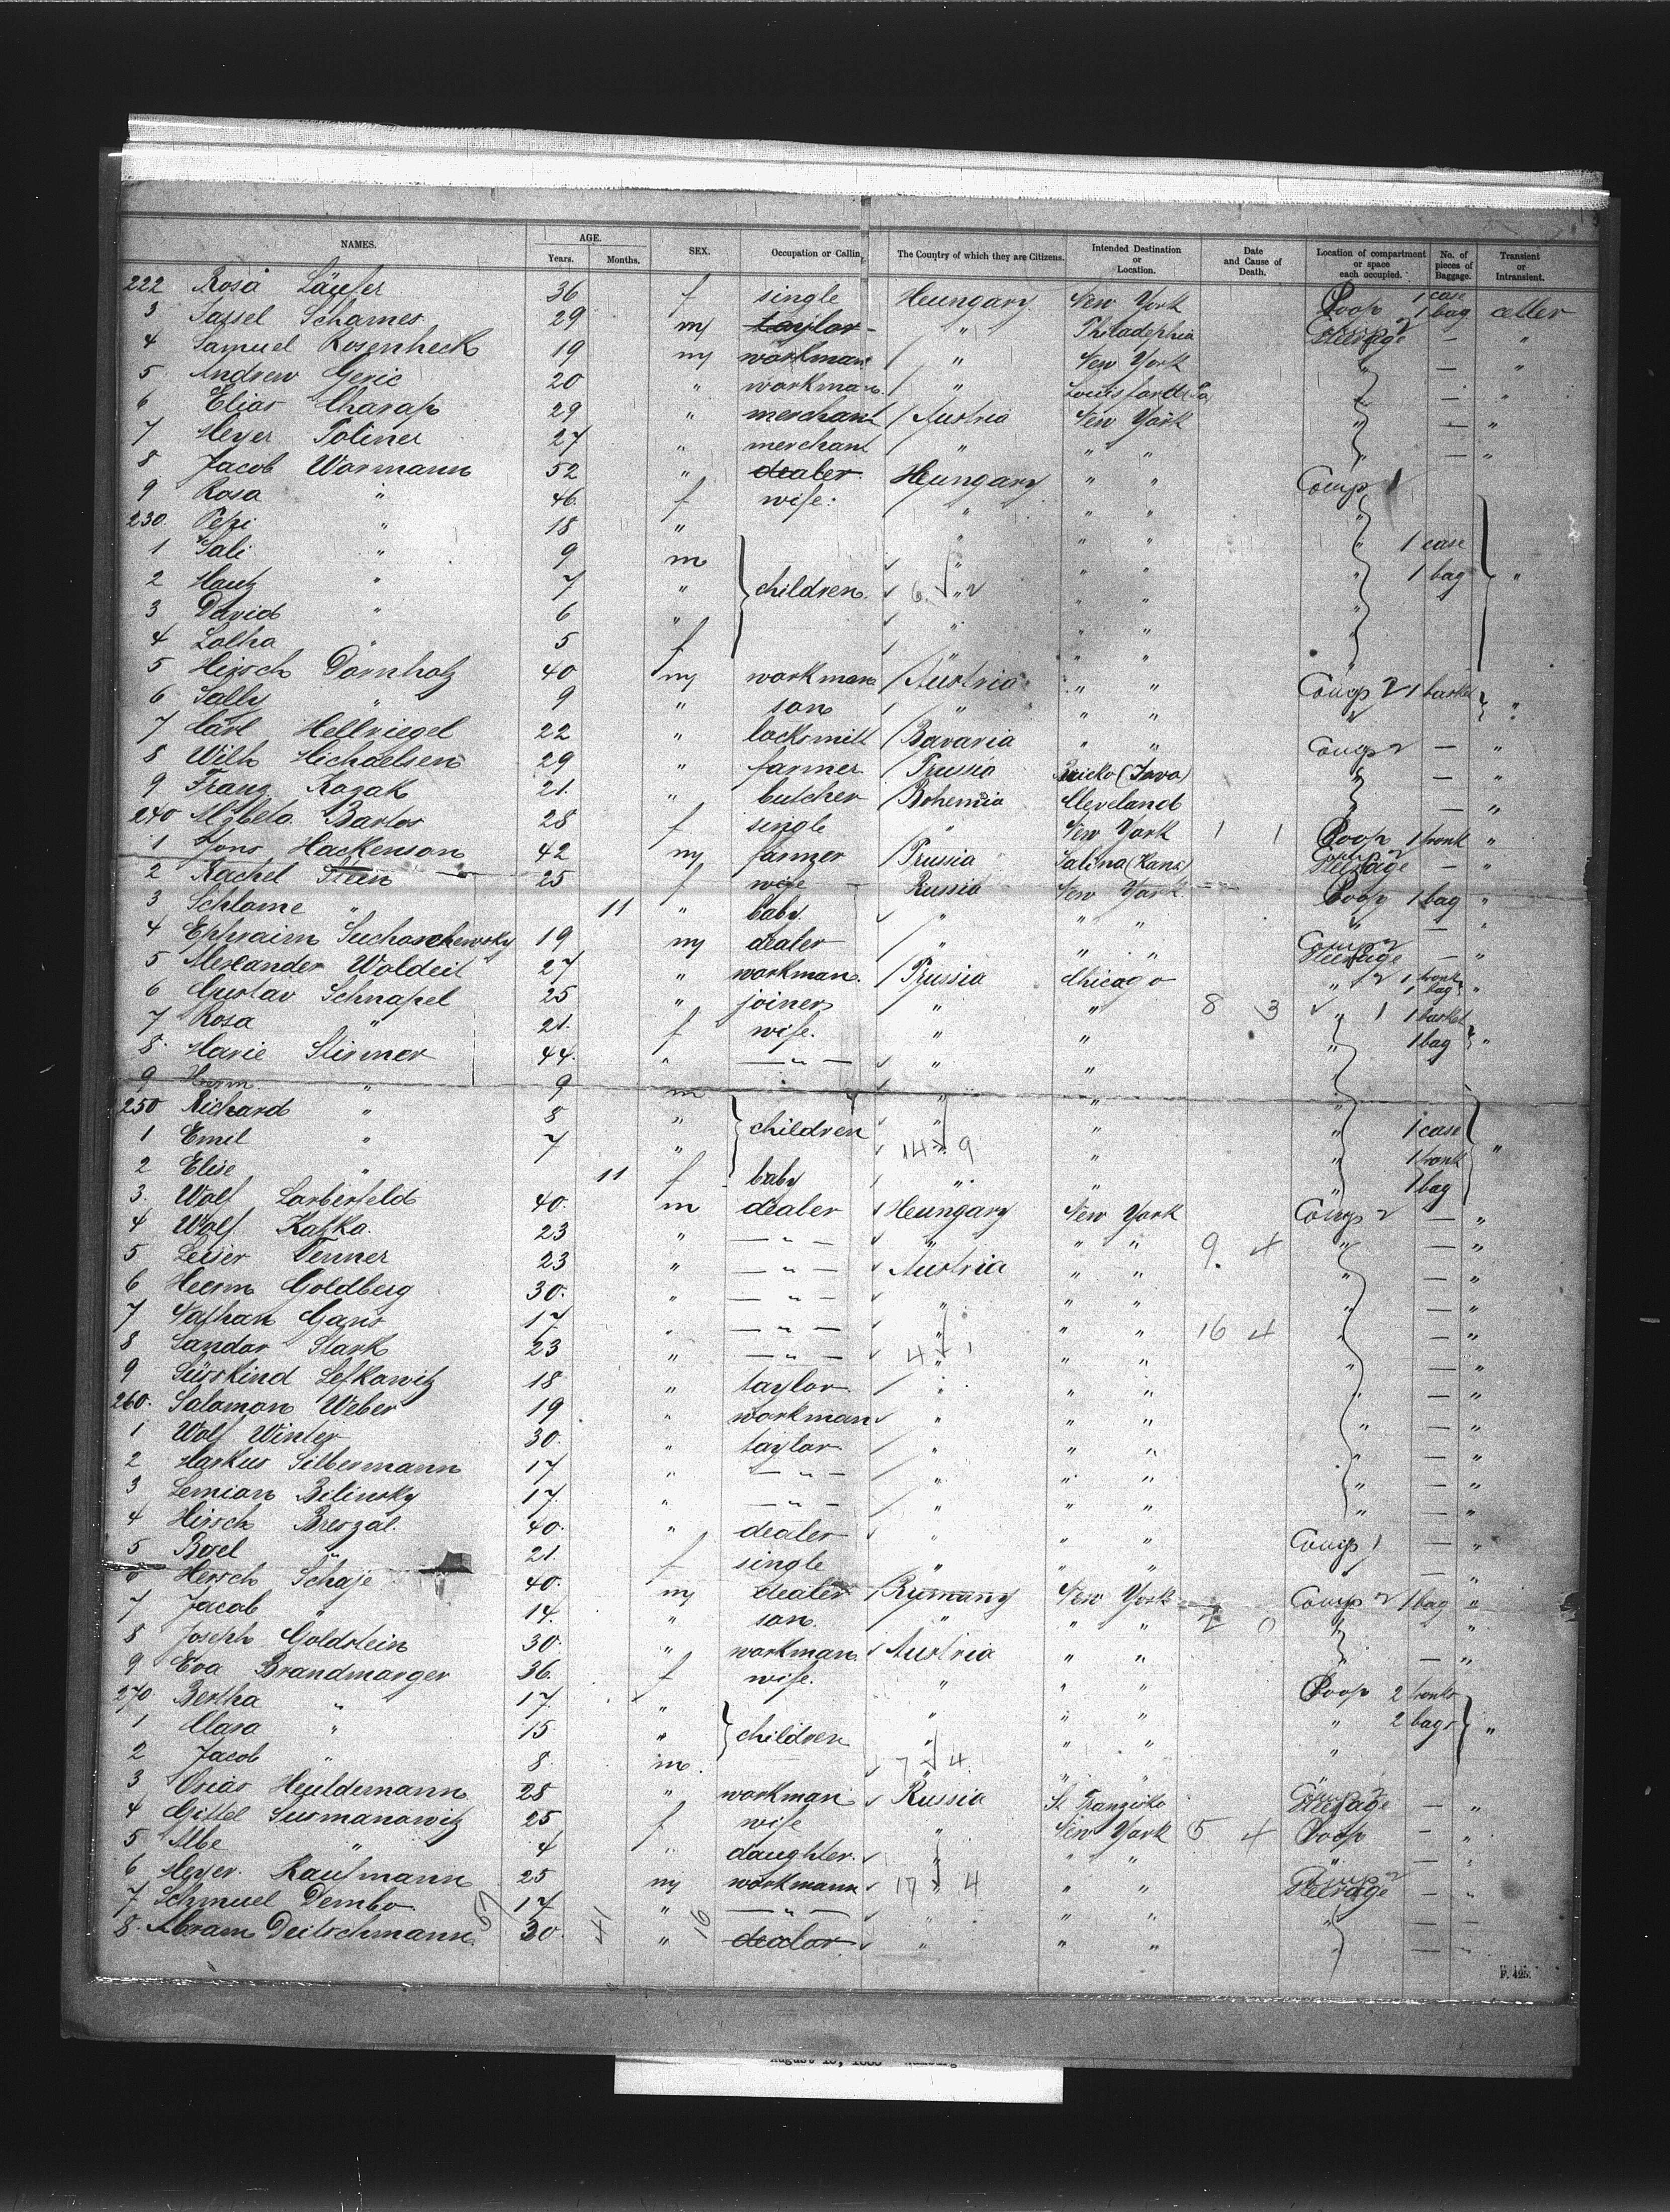 NAMES. AGE. SEX. Occupation or Callin The Country of which they are Citizens. Intended Destination or Location. Date and Cause of Death. Location of compartment or space each occupied. No. of pieces of Baggage. Transient or Intransient.
Years. Months.
222 Rosa Läufer 36 f single Hungary New York Poop 1 case 1 bag
3 Jassel Schames 29 m taylor " Philadephia Comp 2 Steerage — "
4 Samuel Rosenheck 19 m workman " New York " — "
5 Andrew Geric 20 " workman " — "
6 Elias Charap 29 " merchant Austria New York " — "
7 Meyer Toliner 27 " merchant " " " " — "
8 Jacob Wormann 52 " dealer Hungary " " Comp 1
9 Rosa " 46 f wife " " " "
230 Pepi " 18 " " " " "
1 Sali " 9 m " " " " 1 case
2 " 7 " children 6 " 2 " " " 1 bag "
3 David " 6 " " " " "
4 " 5 f " " " "
5 Hirsch Dornholz 40 m workman Austria " " Comp 2 1 basket
6 Sally " 9 " son " " " " "
7 Carl Hellriegel 22 " locksmith Bavaria " " Comp 2 — "
8 Wilh Michaelsen 29 " farmer Prussia " — "
9 Franz Kozak 21 " butcher Bohemia Cleveland " — "
240 Barlos 28 f single " New York 1 1 Poop 1 tronk "
1 Hackenson 42 m farmer Prussia Salina (Kans) Comp 2 Steerage — "
2 Rachel Stein 25 f wife Russia New York Poop 1 bag "
3 Schlome " 11 " baby " " " " — "
4 Ephraim Suchoschewsky 19 m dealer " " " Comp 2 Steerage — "
5 Alexander Woldeit 27 " workman Prussia Chicago " 2 1 tronk 1 bag "
6 Gustav Schnapel 25 " joiner " " 8 3 " 1 1 basket
7 Rosa " 21 f wife " " " 1 bag "
8 Marie Stirmer 44 " — " — " " "
9 Herm " 9 m " " "
250 Richard " 8 " children " " " 1 case
1 Emil " 7 " 14 " 9 " " 1 tronk "
2 Elise " 11 f baby " " " 1 bag
3 Wolf Lorberfeld 40 m dealer Hungary New York Comp 2 — "
4 Wolf Kafka 23 " — " — " " " 9 4 " — "
5 Leiser Tenner 23 " — " — Austria " " " — "
6 Herm Goldberg 30 " — " — " " " " — "
7 Nathan Gans 17 " — " — " " " 16 4 " — "
8 Sandor Stark 23 " — " — 4 " 1 " " " — "
9 Süsskind Lefkowitz 18 " taylor " " " " — "
260 Salamon Weber 19 " workman " " " " — "
1 Wolf Winter 30 " taylor " " " " — "
2 Markus Silbermann 17 " — " — " " " " — "
3 Bilinsky 17 " — " — " " " " — "
4 Hirsch 40 " dealer " " " Comp 1 — "
5 " 21 f single " " " — "
6 Hersch Schaje 40 m dealer Rumany New York Comp 2 1 bag "
7 Jacob " 14 " son " " " 2 0 " "
8 Joseph Goldstein 30 " workman Austria " " " — "
9 Eva Brandmarger 36 f wife " " " Poop 2 tronks
270 Bertha " 17 " " " " " 2 bags "
1 Clara " 15 " children " " " "
2 Jacob " 8 m 7 " 4 " " "
3 Osias Heuldemann 28 " workman Russia St Franzisko Comp 2 Steerage — "
4 Gittel Susmanowitz 25 f wife " New York 5 4 Poop — "
5 Albe " 4 " daughter " " " " — "
6 Meyer Kaufmann 25 m workmann 17 " 4 " " Comp 2 Steerage — "
7 Schmuel Dembo 17 " — " — " " " " — —
8 Abram Deitschmann 30 " dealer " " " " — —
57 41 16
F. 425.